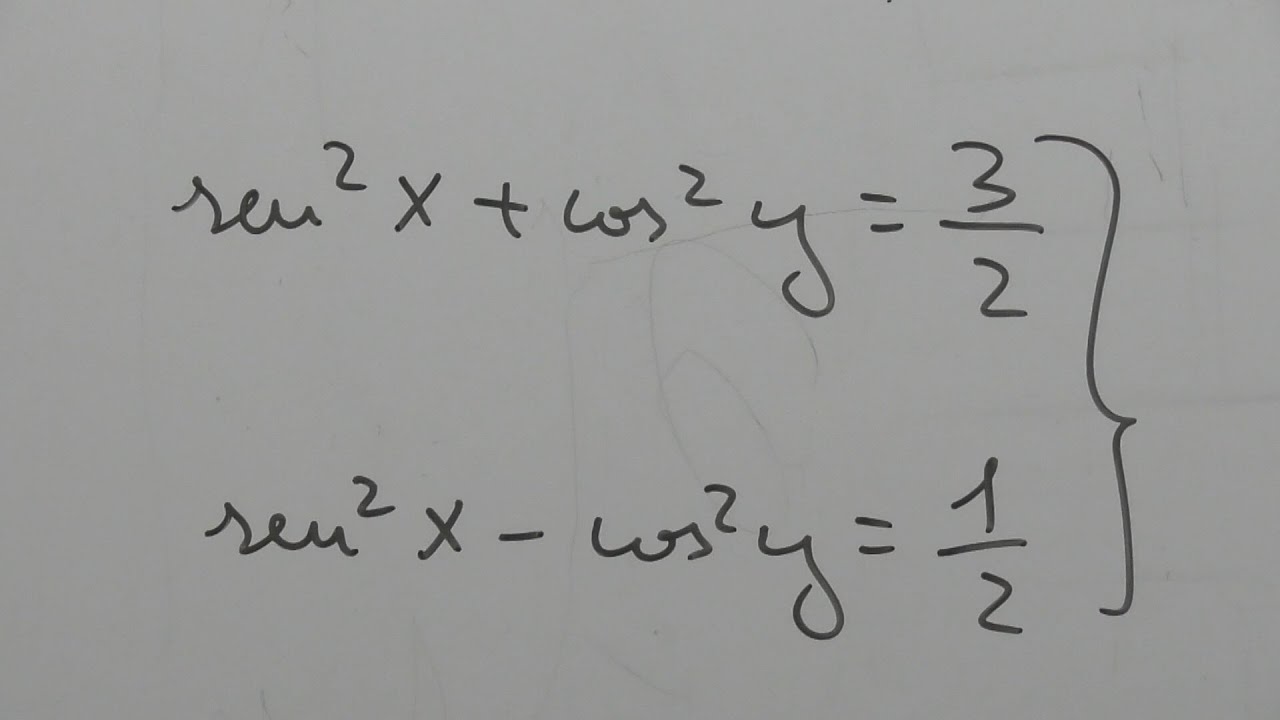 sen² x + cos² y = 3/2
sen² x - cos² y = 1/2